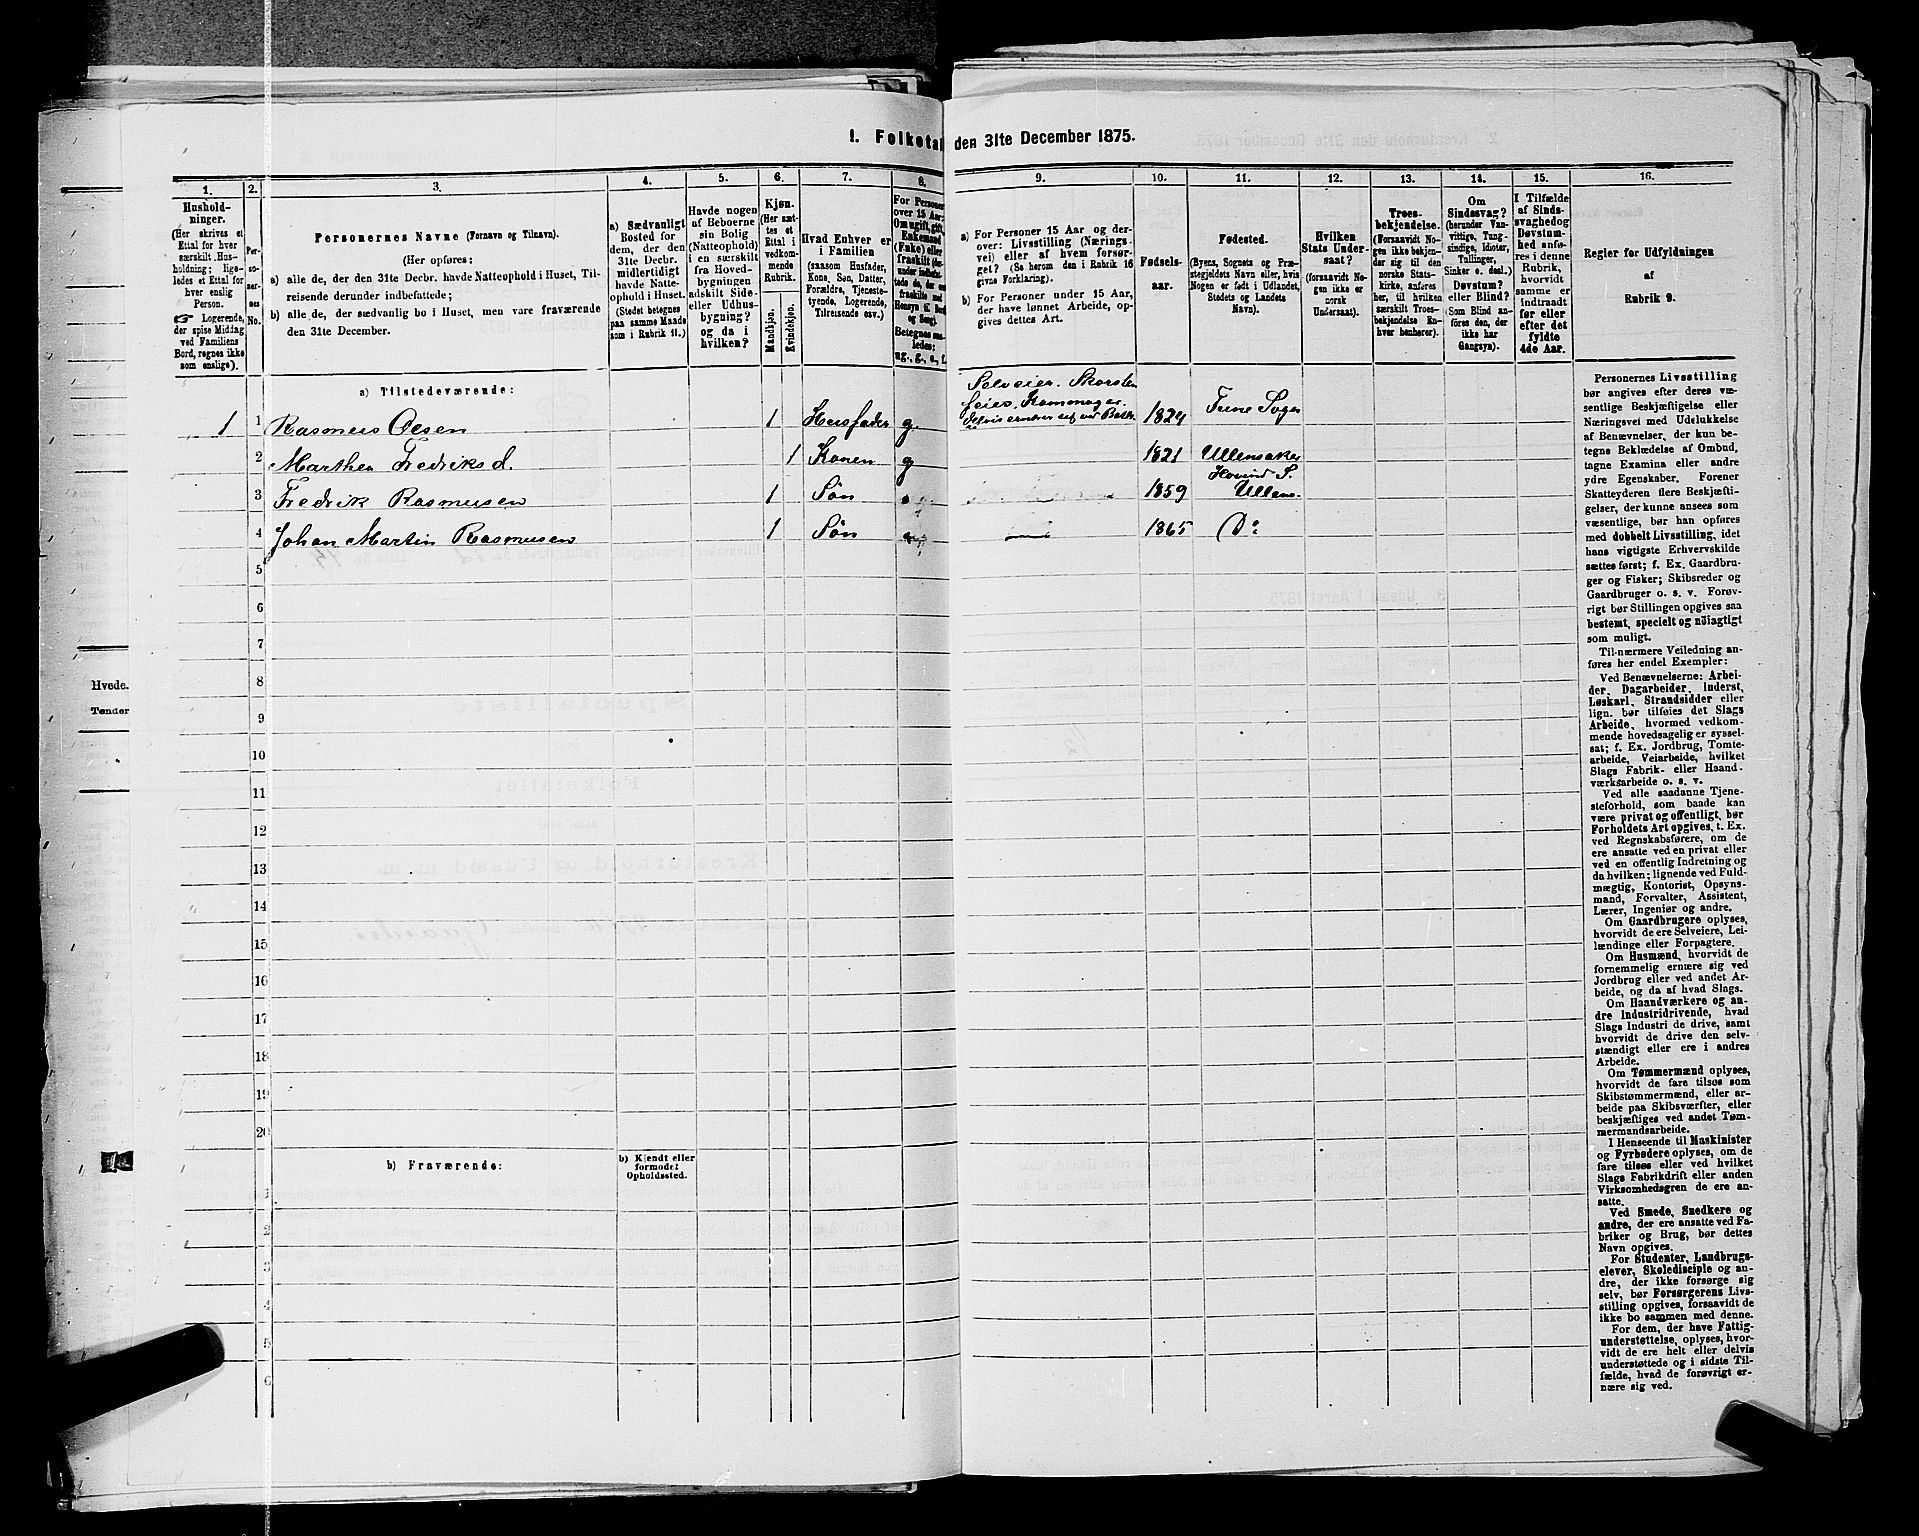 1. Folketal den 31te December 1875.
1.
2.
3.
4.
5.
6.
7.
8.
9.
10.
11.
12.
13.
14.
15.
16.
Hushold-
ninger.
(Her skrives et
Ettal for hver
særskilt Hus-
holdning; lige-
ledes et Ettal for
hver enslig
Person.
☞ Logerende,
der spise Middag
ved Familiens
Bord, regnes ikke
som enslige).
Per-
so-
ner-
nes
No.
Personernes Navne (Fornavn og Tilnavn).
(Her opføres:
a) alle de, der den 31te Decbr. havde Natteophold i Huset, Til-
reisende derunder indbefattede;
b) alle de, der sædvanlig bo i Huset, men vare fraværende
den 31te December.
a) Sædvanligt
Bosted for
dem, der den
31te Decbr.
midlertidigt
havde Natte-
ophold i Huset.
(Stedet betegnes
paa samme Maade
som i Rubrik 11.)
Havde nogen
af Beboerne
sin Bolig
(Natteophold)
i en særskilt
fra Hoved-
bygningen
adskilt Side-
eller Udhus-
bygning?
og da i
hvilken?
Kjøn.
(Her sæt-
tes et
Ettal i
vedkom-
mende
Rubrik.
Mandkjøn.
Kvindekjøn.
Hvad Enhver er
i Familien
(saasom Husfader,
Kone, Søn, Datter,
Forældre, Tjeneste-
tyende, Logerende,
Tilreisende osv.)
For Personer
over 15 Aar:
Om ugift, gift,
Enkemand
(Enke) eller
fraskilt
Betegnes saa-
ledes:
ug., g., e., f.
a) For Personer 15 Aar og der-
over: Livsstilling (Nærings-
vei) eller af hvem forsør-
get? (Se herom den i Rubrik 16
givne Forklaring).
b) For Personer under 15 Aar,
der have lønnet Arbeide, op-
gives dettes Art.
Fødsels-
aar.
Fødested.
(Byens, Sognets og Præ-
stegjeldets Navn eller, hvis
Nogen er født i Udlandet,
Stedets og Landets
Navn).
Hvilken
Stats Under-
saat?
(forsaavidt No-
gen ikke er
norsk
Undersaat).
Troes-
bekjendelse.
(Forsaavidt No-
gen ikke bekjen-
der sig til den
norske Stats-
kirke, anføres
her, til hvilken
særskilt Troes-
bekjendelse En-
hver henhører).
Om
Sindssvag?
(herunder Van-
vittige, Tung-
sindige, Idioter,
Tullinger,
Sinker o. desl.)
Døvstum?
eller Blind?
(Som Blind an-
føres den, der
ikke har
Gangsyn).
I Tilfælde
af Sinds-
svaghed og
Døvstum-
hed anfø-
res i denne
Rubrik,
hvorvidt
samme er
indtraadt
før eller
efter det
fyldte
4de Aar.
Regler for Udfyldningen
af
Rubrik 9.
a) Tilstedeværende:
1 1 Rasmus Olsen 1 Husfader g. Selveier. Skorsten
feier. 1824 Tune Sogn
2 Marthea Fredriksd. 1 Konen g 1821 Ullensaker
Hovind S.
3 Fredrik Rasmusen 1 Søn 1859 Ullens.
4 Johan Martin Rasmusen 1 Søn 1865 Do
5
6
7
8
9
10
11
12
13
14
15
16
17
18
19
20
b) Fraværende:
b) Kjendt eller
formodet
Opholdssted.
1
2
3
4
5
6
Hvede.
Tønder
Personernes Livsstilling
bør angives efter deres væ-
sentlige Beskjæftigelse eller
Næringsvei med Udelukkelse
af Benævnelser, der kun be-
tegne Beklædelse af Ombud,
tagne Examina eller andre
ydre Egenskaber. Forener
Skatteyderen flere Beskjæfti-
gelser, der kunne ansees som
væsentlige, bør han opføres
med dobbelt Livsstilling, idet
hans vigtigste Erhvervskilde
sættes først; f. Ex. Gaardbru-
ger og Fisker; Skibsreder og
Gaardbruger o. s. v. Forøv-
rigt bør Stillingen opgives saa
bestemt, specielt og nöiagtigt
som muligt.
Til nærmere Veiledning an-
føres her endel Exempler:
Ved Benævnelserne: Arbei-
der, Dagarbeider, Inderst,
Løskarl, Strandsidder eller
lign. bør tilføies det Slags
Arbeide, hvormed vedkom-
mende hovedsagelig er syssel-
sat; f. Ex. Jordbrug, Tomte-
arbeide, Veiarbeide, hvilket
Slags Fabrik- eller Haand-
værksarbeide o. s. v.
Ved alle saadanne Tjene-
steforhold, som baade kan
være privat og offentligt, bør
Forholdets Art opgives, t. Ex.
ved Regnskabsførere, om de
ere ansatte ved en privat eller
ved en offentlig Indretning og
da hvilken; lignende ved Fuld-
mægtig, Kontorist, Opsyns-
mand, Forvalter, Assistent,
Lærer, Ingeniør og andre.
Om Gaardbrugere oplyses,
hvorvidt de ere Selveiere, Lei-
lændinge eller Forpagtere.
Om Husmænd, hvorvidt de
fornemmelig ernære sig ved
Jordbrug eller ved andet Ar-
beide, og da af hvad Slags.
Om Haandværkere og an-
dre Industridrivende, hvad
Slags Industri de drive, samt
hvorvidt de drive den selv-
stændigt eller ere i andres
Arbeide.
Om Tømmermænd oplyses,
hvorvidt de fare tilsøs som
Skibstømmermænd, eller ar-
beide paa Skibsværfter, eller
beskjæftiges ved andet Tøm-
mermandsarbeide.
I Henseende til Maskinister
og Fyrbødere oplyses, om de
fare tilsøs eller ved hvilket
Slags Fabrikdrift eller anden
Virksomhedsgren de ere an-
satte.
Ved Smede, Snedkere og
andre, der ere ansatte ved Fa-
briker og Brug, bør dettes
Navn opgives.
For Studenter, Landbrugs-
elever, Skoledisciple og an-
dre, der ikke forsørge sig
selv, bør Forsørgerens Livs-
stilling opgives, forsaavidt de
ikke bo sammen med denne.
For dem, der have Fattig-
understøttelse, oplyses, hvor-
vidt de ere helt eller delvis
understøttede og i sidste Til-
fælde, hvad de forøvrigt er-
nære sig ved.